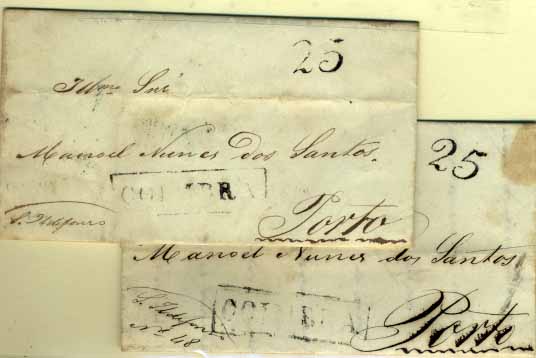 25
Illmo Snr
Manoel Nunes dos Santos.
COIMBRA
Porto
S. Ildefonso
25
Manoel Nunes dos Santos
COIMBRA
Porto
S. Ildefonso
No 48